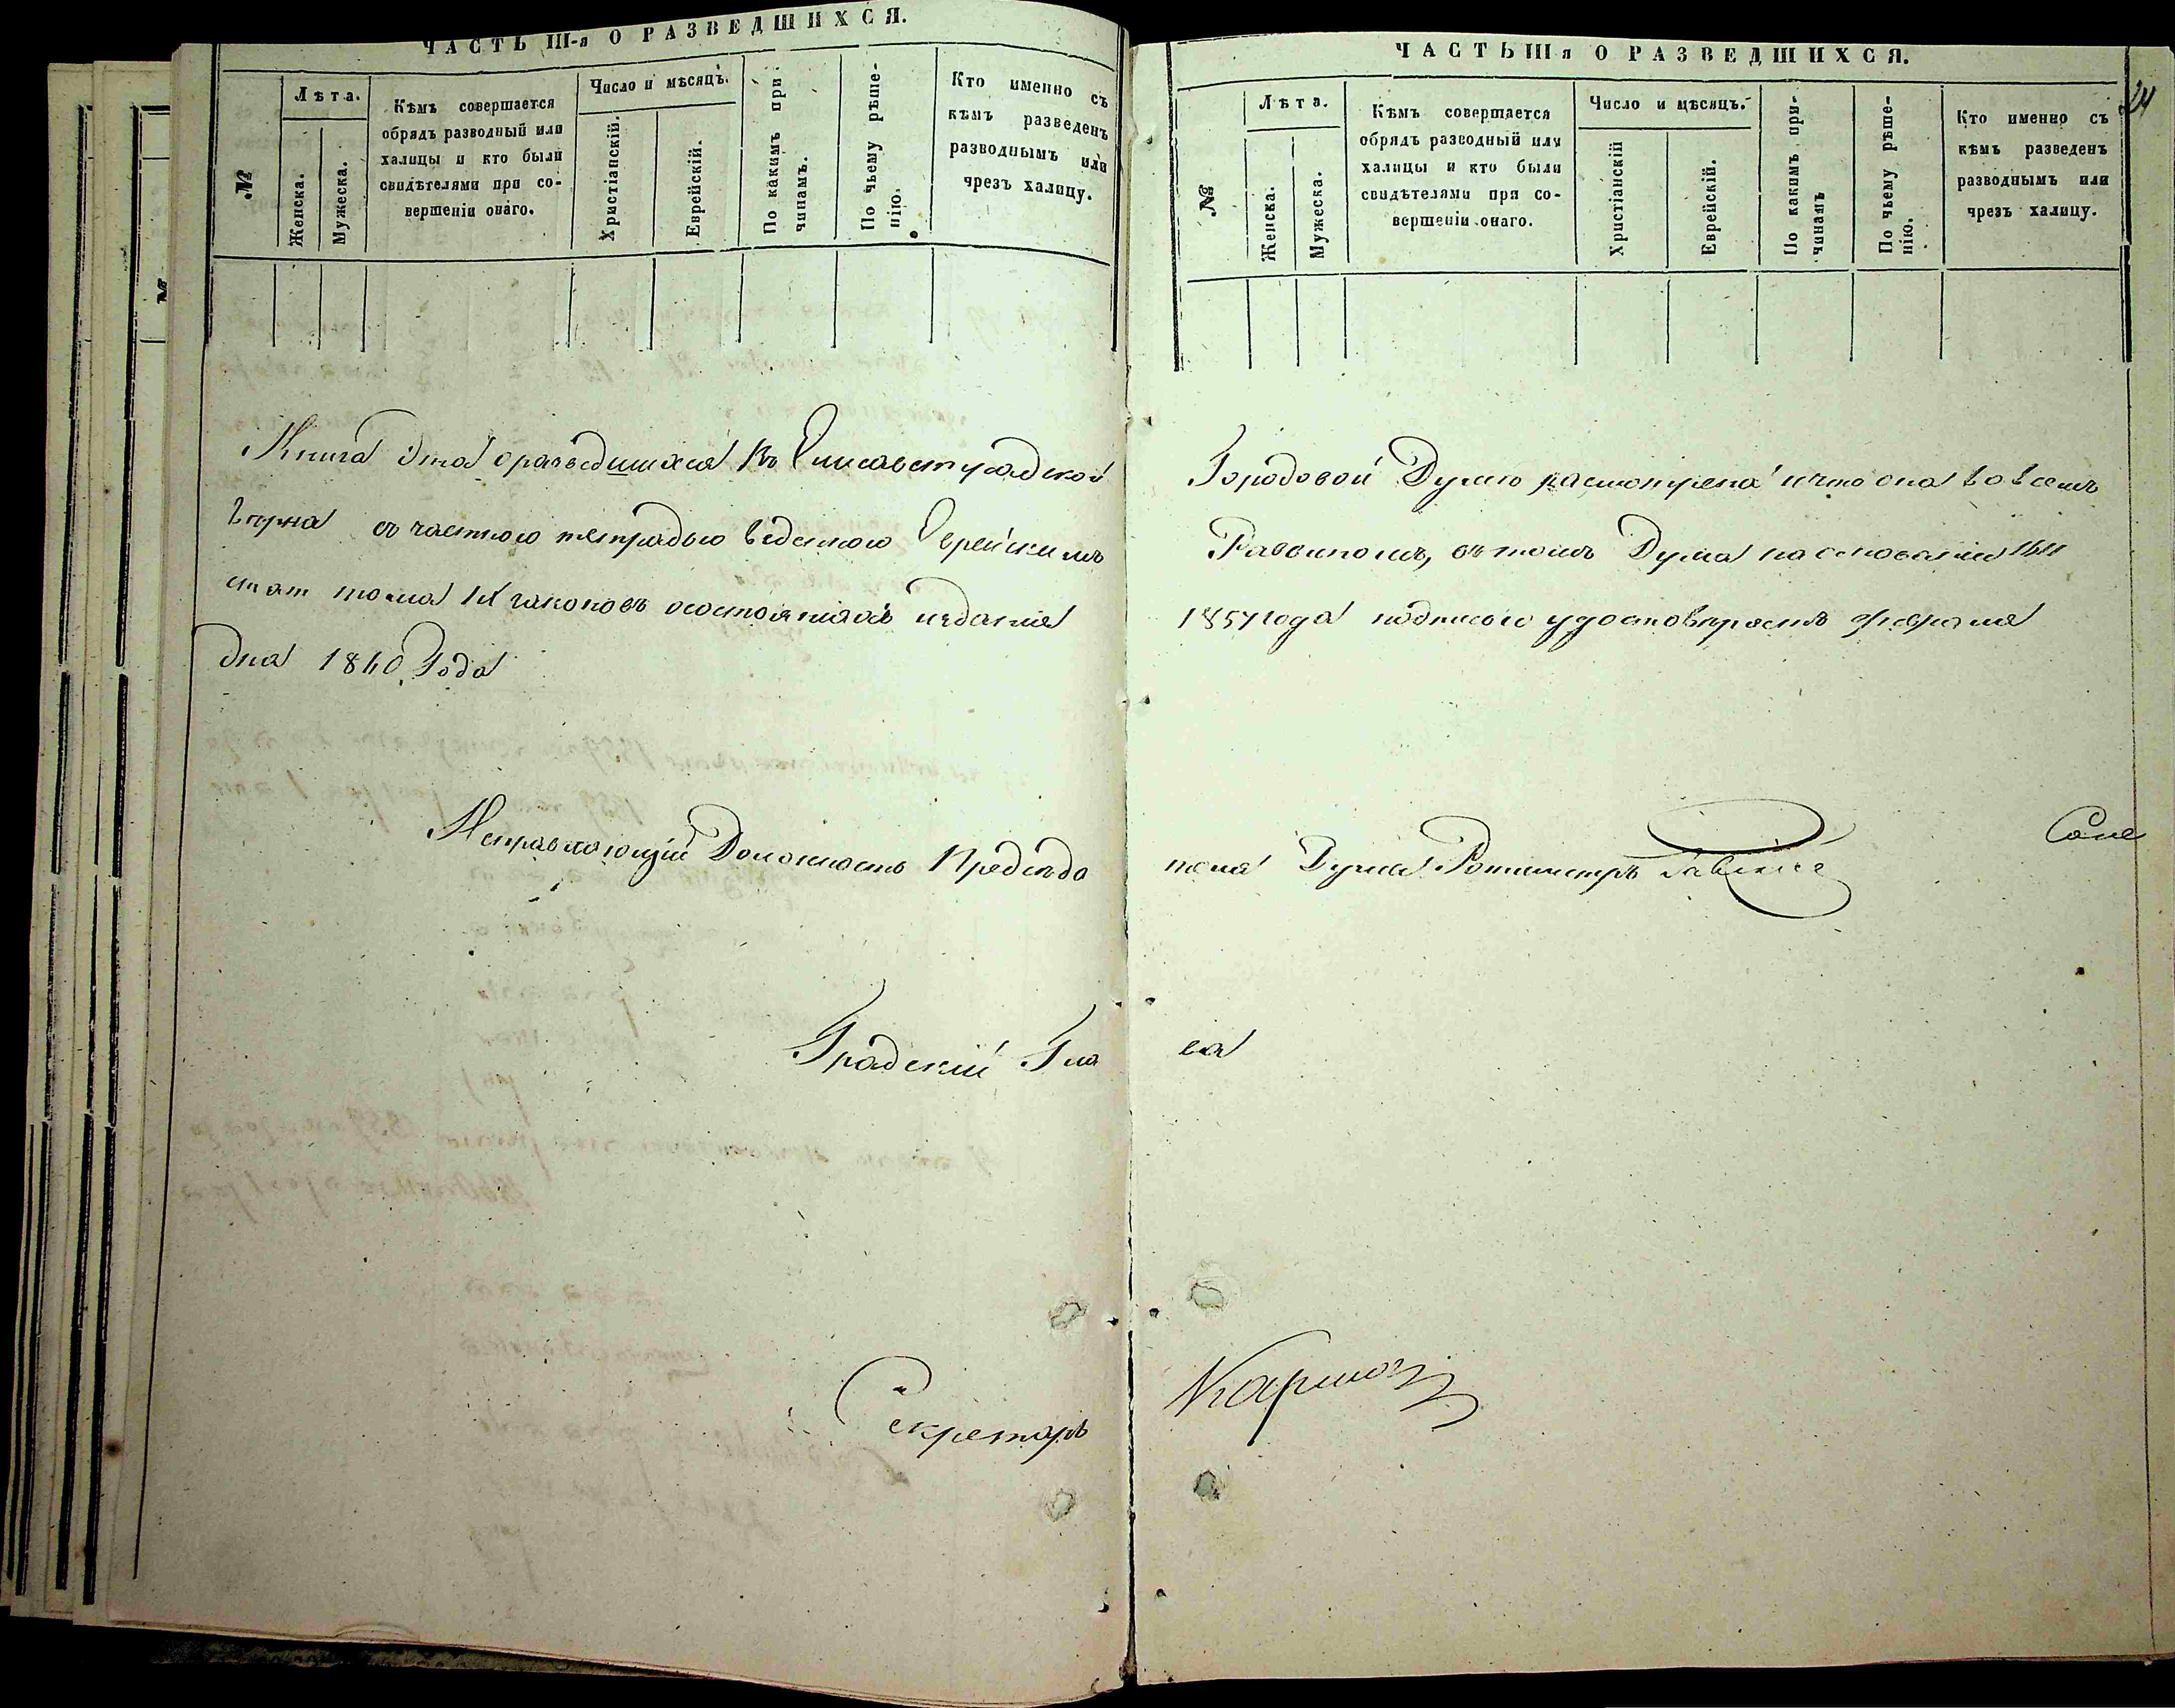 ЧАСТЬ III-я О РАЗВЕДШИХСЯ.
№
Лѣта.
Женска.
Мужеска.
Кѣмъ совершается
обрядъ разводный или
халицы и кто были
свидѣтелями при со-
вершеніи онаго.
Число и мѣсяцъ.
Христіанскій.
Еврейскій.
По какимъ при-
чинамъ.
По чьему рѣше-
нію.
Кто именно съ
кѣмъ разведенъ
разводнымъ или
чрезъ халицу.
Книга эта о разведшихся въ Елисаветградской
вѣрна съ частною тетрадью веденною Еврейскимъ
стат тома IX законовъ о состояніяхъ изданія
дня 1860 Года
Исправляющій Должность Предсѣда
Градскій Гла
Секретарь
ЧАСТЬ III я О РАЗВЕДШИХСЯ.
24
№
Лѣта.
Женска.
Мужеска.
Кѣмъ совершается
обрядъ разводный или
халицы и кто были
свидѣтелями при со-
вершеніи онаго.
Число и мѣсяцъ.
Христіанскій
Еврейскій.
По какимъ при-
чинамъ
По чьему рѣше-
нію.
Кто именно съ
кѣмъ разведенъ
разводнымъ или
чрезъ халицу.
Городовой Думою расмотрена и что она во всемъ
Раввиномъ, въ томъ Дума на основаніи
1857 года подписью удостовѣряетъ февраля
теля Думы Ротмистръ
ва